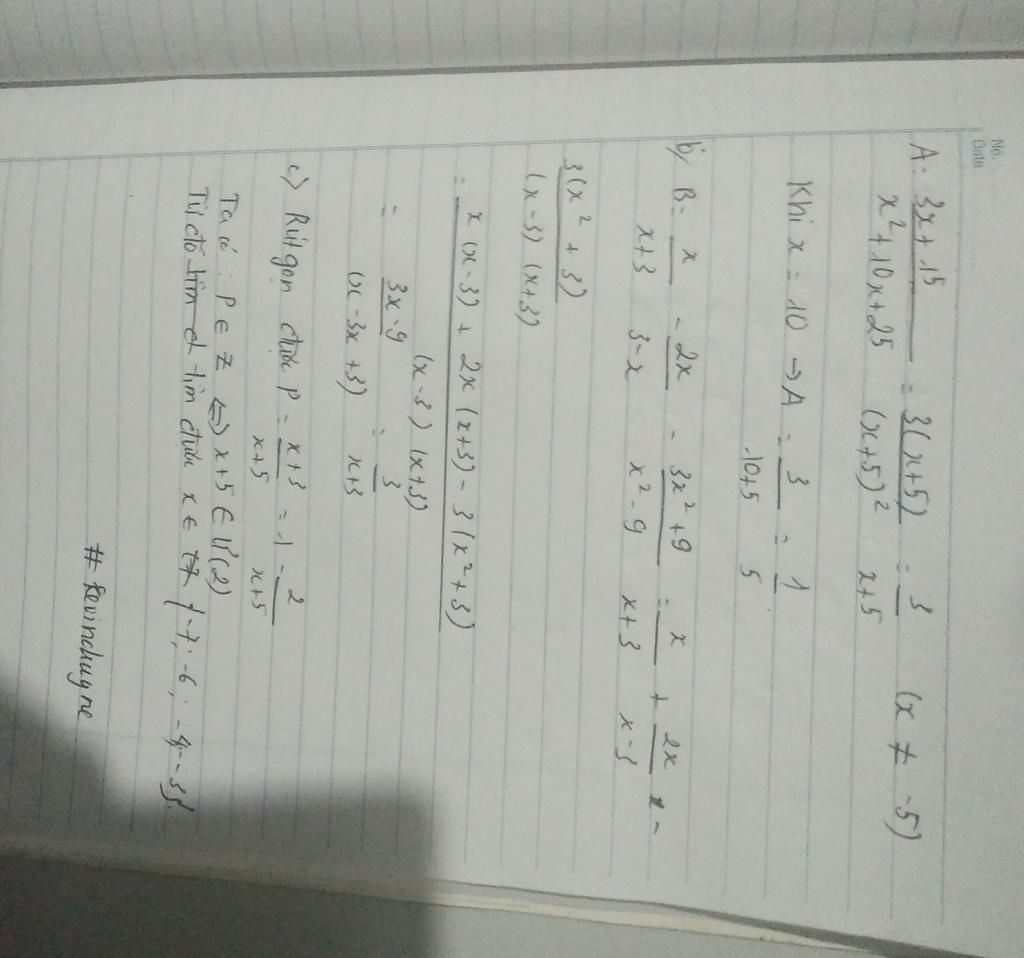 No.
Date
A = 3x+15 / x²+10x+25 = 3(x+5) / (x+5)² = 3 / x+5 (x ≠ -5)
Khi x = 10 → A = 3 / 10+5 = 1 / 5
b) B = x / x+3 - 2x / 3-x - 3x²+9 / x²-9 = x / x+3 + 2x / x-3 -
3(x²+3) / (x-3)(x+3)
= x(x-3) + 2x(x+3) - 3(x²+3) / (x-3)(x+3)
= 3x-9 / (x-3x+3) = 3 / x+3
c) Rút gọn được P = x+3 / x+5 = 1 - 2 / x+5
Ta có : P ∈ Z ⇔ x+5 ∈ Ư(2)
Từ đó tìm được x ∈ {-7; -6; -4; -3}.
# Kevinchugne